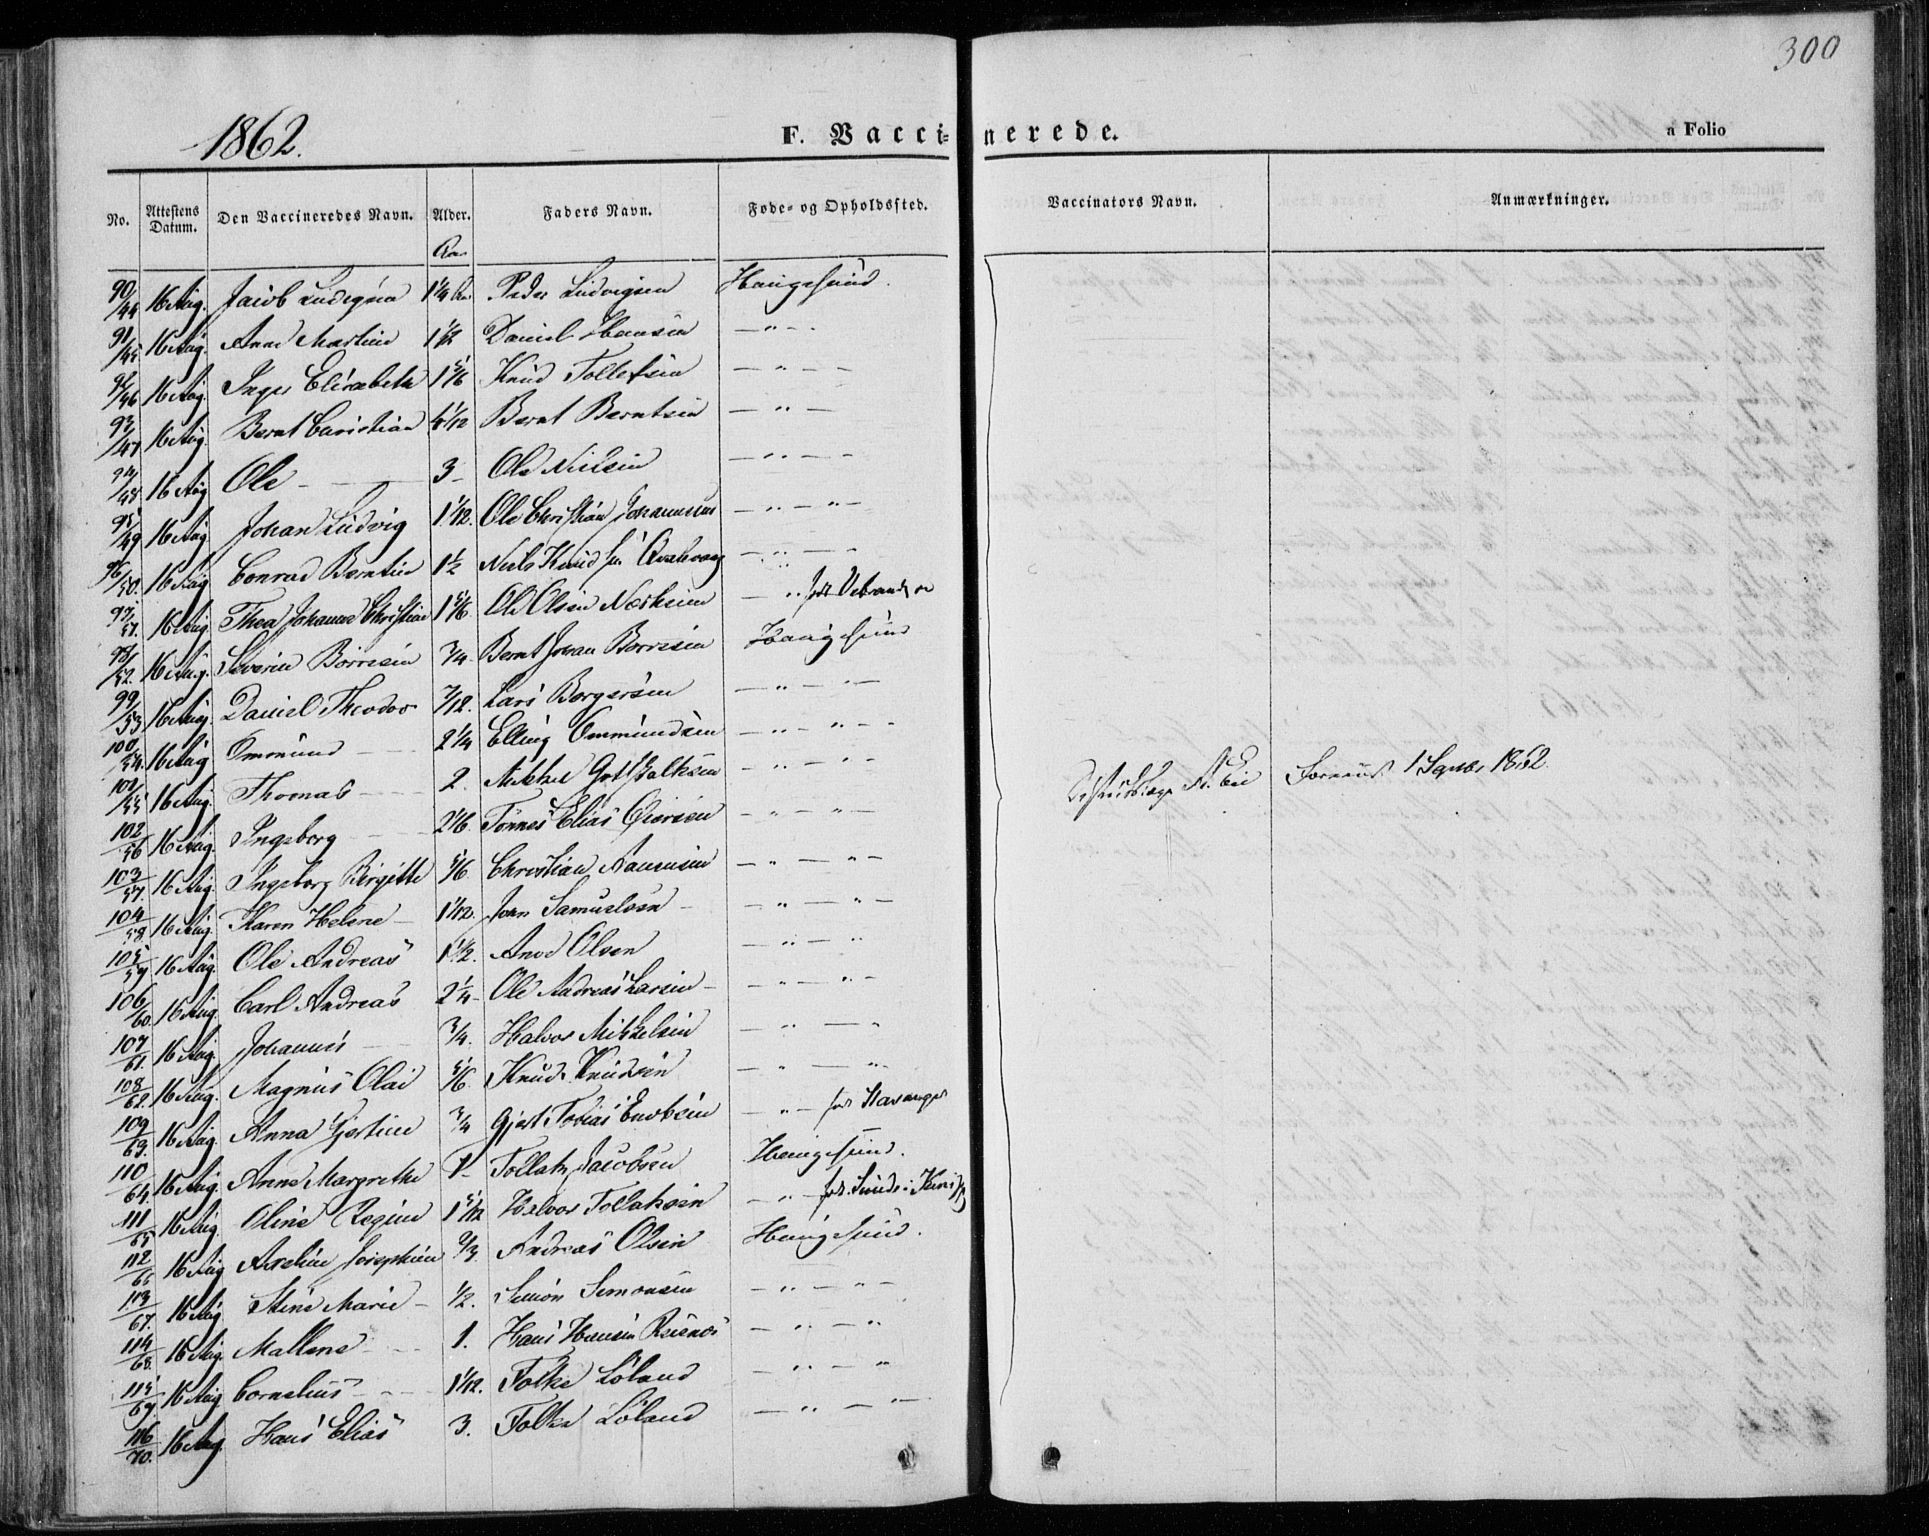 300
1862.
F. Vaccinerede.
a Folio
No. Attestens Datum. Den Vaccineredes Navn. Alder. Faders Navn. Føde- og Opholdssted. Vaccinators Navn. Anmærkninger.
Aar
90/44 16 Aug. Jacob 1 1/4 Aar Peder Ludvigsen Haugesund.
91/45 16 Aug. Anne Martine 1 1/2 Daniel Hansen — " — .
92/46 16 Aug. Inger Elisabeth 1 5/6 Knud Tollefsen — " — —
93/47 16 Aug. Bernt Christian Bernt Berntsen — " —
94/48 16 Aug Ole — 3 — Ole Nielsen — " — —
95/49 16 Aug. Johan Ludvig 1 1/12. Ole Christian Johannesen — " — " —
96/50. 16 Aug Conrad Berntin 1 1/2 Niels Knudsen Qvalevaag — " — "
97/51. 16 Aug. Thea Johanne Christine 1 5/6 Ole Olsen — " født
98/52. 16 Aug. Severin Børresen 3/4. Bernt Johan Børresen Haugesund
99/53 16 Aug. Daniel Theodor 7/12. Lars Borgersen — " — " —
100/54. 16 Aug Ommund — 2 1/4 Elling Ommundsen — " — " —
101/55 16 Aug. Thomas — 2. Mikkel — " — " — Distriktslæge Foreviist 1 Septbr 1862.
102/56 16 Aug. Ingeborg — 2 1/6. Tønnes Elias — " — " —
103/57. 16 Aug. Ingeborg Birgitte 5/6 Christian — " — " —
104/58. 16 Aug. Karen Helene — 1 1/12. John Samuelsen — — " — " —
105/59 16 Aug. Ole Andreas 1 1/2. Olsen — " — "
106/60. 16 Aug. Carl Andreas 2 1/4 — Ole Andreas Larsen — — " — " —
107/61. 16 Aug. Johannes — 3/4. Halvor Mikkelsen — " — "
108/62. 16 Aug. Magnus Olai 5/6 Knud Knudsen — " — "
109/63. 16 Aug. Anna Gjertine 3/4 Gjert Tobias — " — født Stavanger
110/64. 16 Aug. Anne Margrethe 1 — Tollak Jacobsen Haugesund.
111/65 16 Aug. Oline Regine 1 5/12 Halvor Tollaksen — " — født
112/66 16 Aug Josephine 2/3. Andreas Olsen Haugesund.
113/67. 16 Aug. Stine Marie — 1/2. Simon Simonsen — " — " —
114/68. 16 Aug. Mallene — 1. Hans Hansen — " — "
115/69 16 Aug Cornelius — 1 1/12. Folke Løland — " — "
116/70. 16 Aug. Hans Elias 3. Folke Løland — " — " —